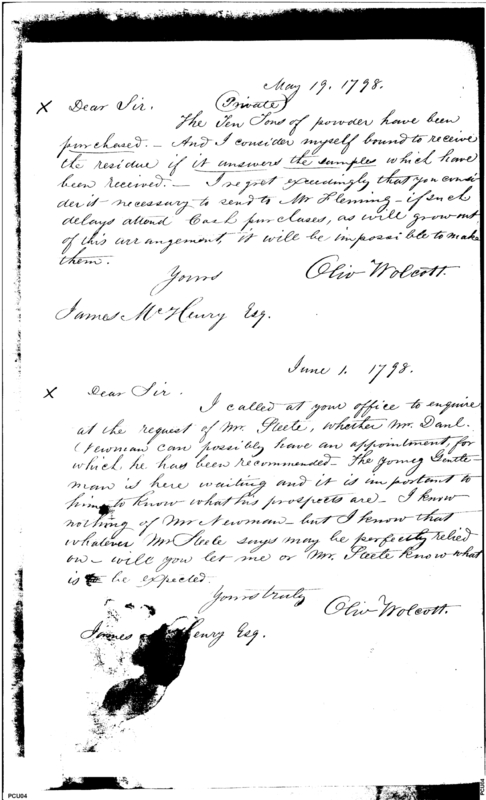 May 19. 1798.
x Dear Sir. (Private)
The Ten Tons of powder have been
purchased. - And I consider myself bound to receive
the residue if it answers the samples which have
been received. - I regret exceedingly that you consi-
der it necessary to send to Mr Fleming - if such
delays attend Cash purchases, as will grow out
of this arrangement, it will be impossible to make
them.
Yours
Oliv Wolcott.
James McHenry Esq.
June 1. 1798.
x Dear Sir.
I called at your office to enquire
at the request of Mr. Steete, whether Mr. Danl.
Newman can possibly have an appointment, for
which he has been recommended - The young Gentle-
man is here waiting and it is important to
him to know what his prospects are - I know
nothing of Mr Newman - but I know that
whatever Mr Steete says may be perfectly relied
on - will you let me or Mr. Steete know what
is to be expected
Yours truly
Oliv Wolcott.
James Henry Esq.
PCU04
PCU04